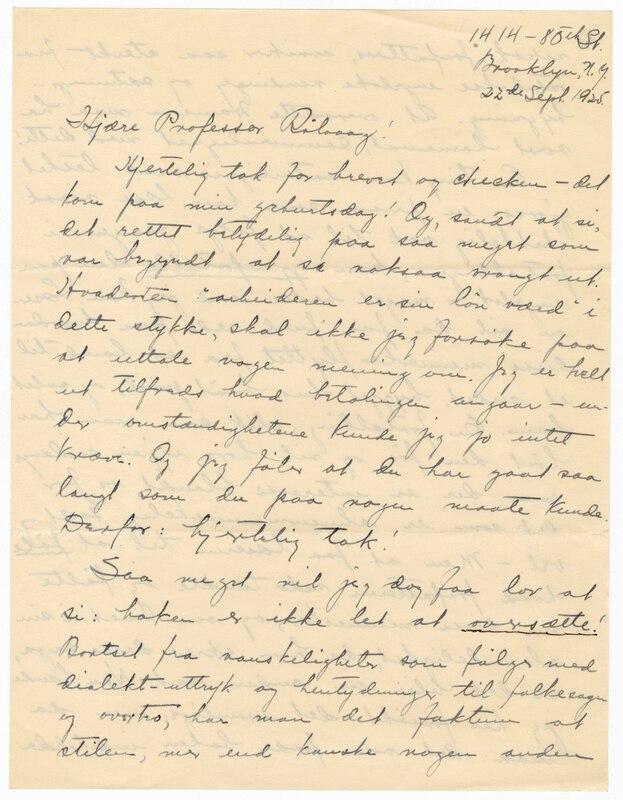 1414 - 85th St.
Brooklyn, N.Y.
22de Sept. 1925.
Kjære Professor Rölvaag!
Hjertelig tak for brevet og checken - det
kom paa min geburtsdag! Og, sandt at si,
det rettet betydelig paa saa meget som
var begyndt at se noksaa vrangt ut.
Hvadenten "arbeideren er sin løn værd" i
dette stykke, skal ikke jeg forsøke paa
at uttale nogen mening om. Jeg er helt
ut tilfreds hvad betalingen angaar - un-
der omstændighetene kunde jeg jo intet
kræve. Og jeg føler at du har gaat saa
langt som du paa nogen maate kunde.
Derfor: hjertelig tak!
Saa meget vil jeg dog faa lov at
si: boken er ikke let at oversætte!
Bortset fra vanskeligheter som følger med
dialekt-uttryk og hentydninger til folkesagn
og overtro, har man det faktum at
stilen, mer end kanske nogen anden